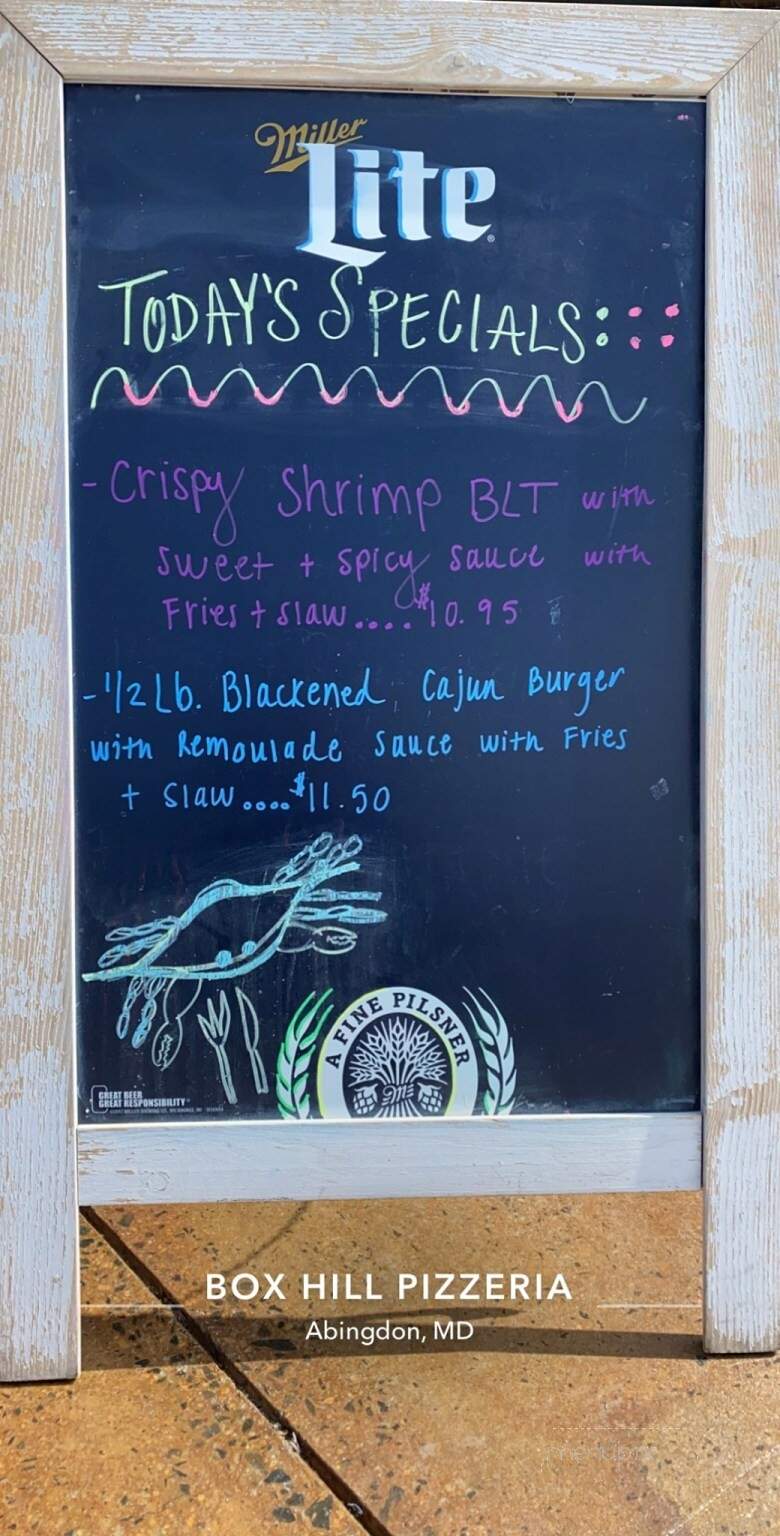 Miller
Lite
TODAY'S SPECIALS:::
- Crispy Shrimp BLT with
sweet + spicy sauce with
Fries + slaw....$10.95
- 1/2 Lb. Blackened Cajun Burger
with Remoulade Sauce with Fries
+ slaw....$11.50
A FINE PILSNER
GREAT BEER
GREAT RESPONSIBILITY
BOX HILL PIZZERIA
Abingdon, MD